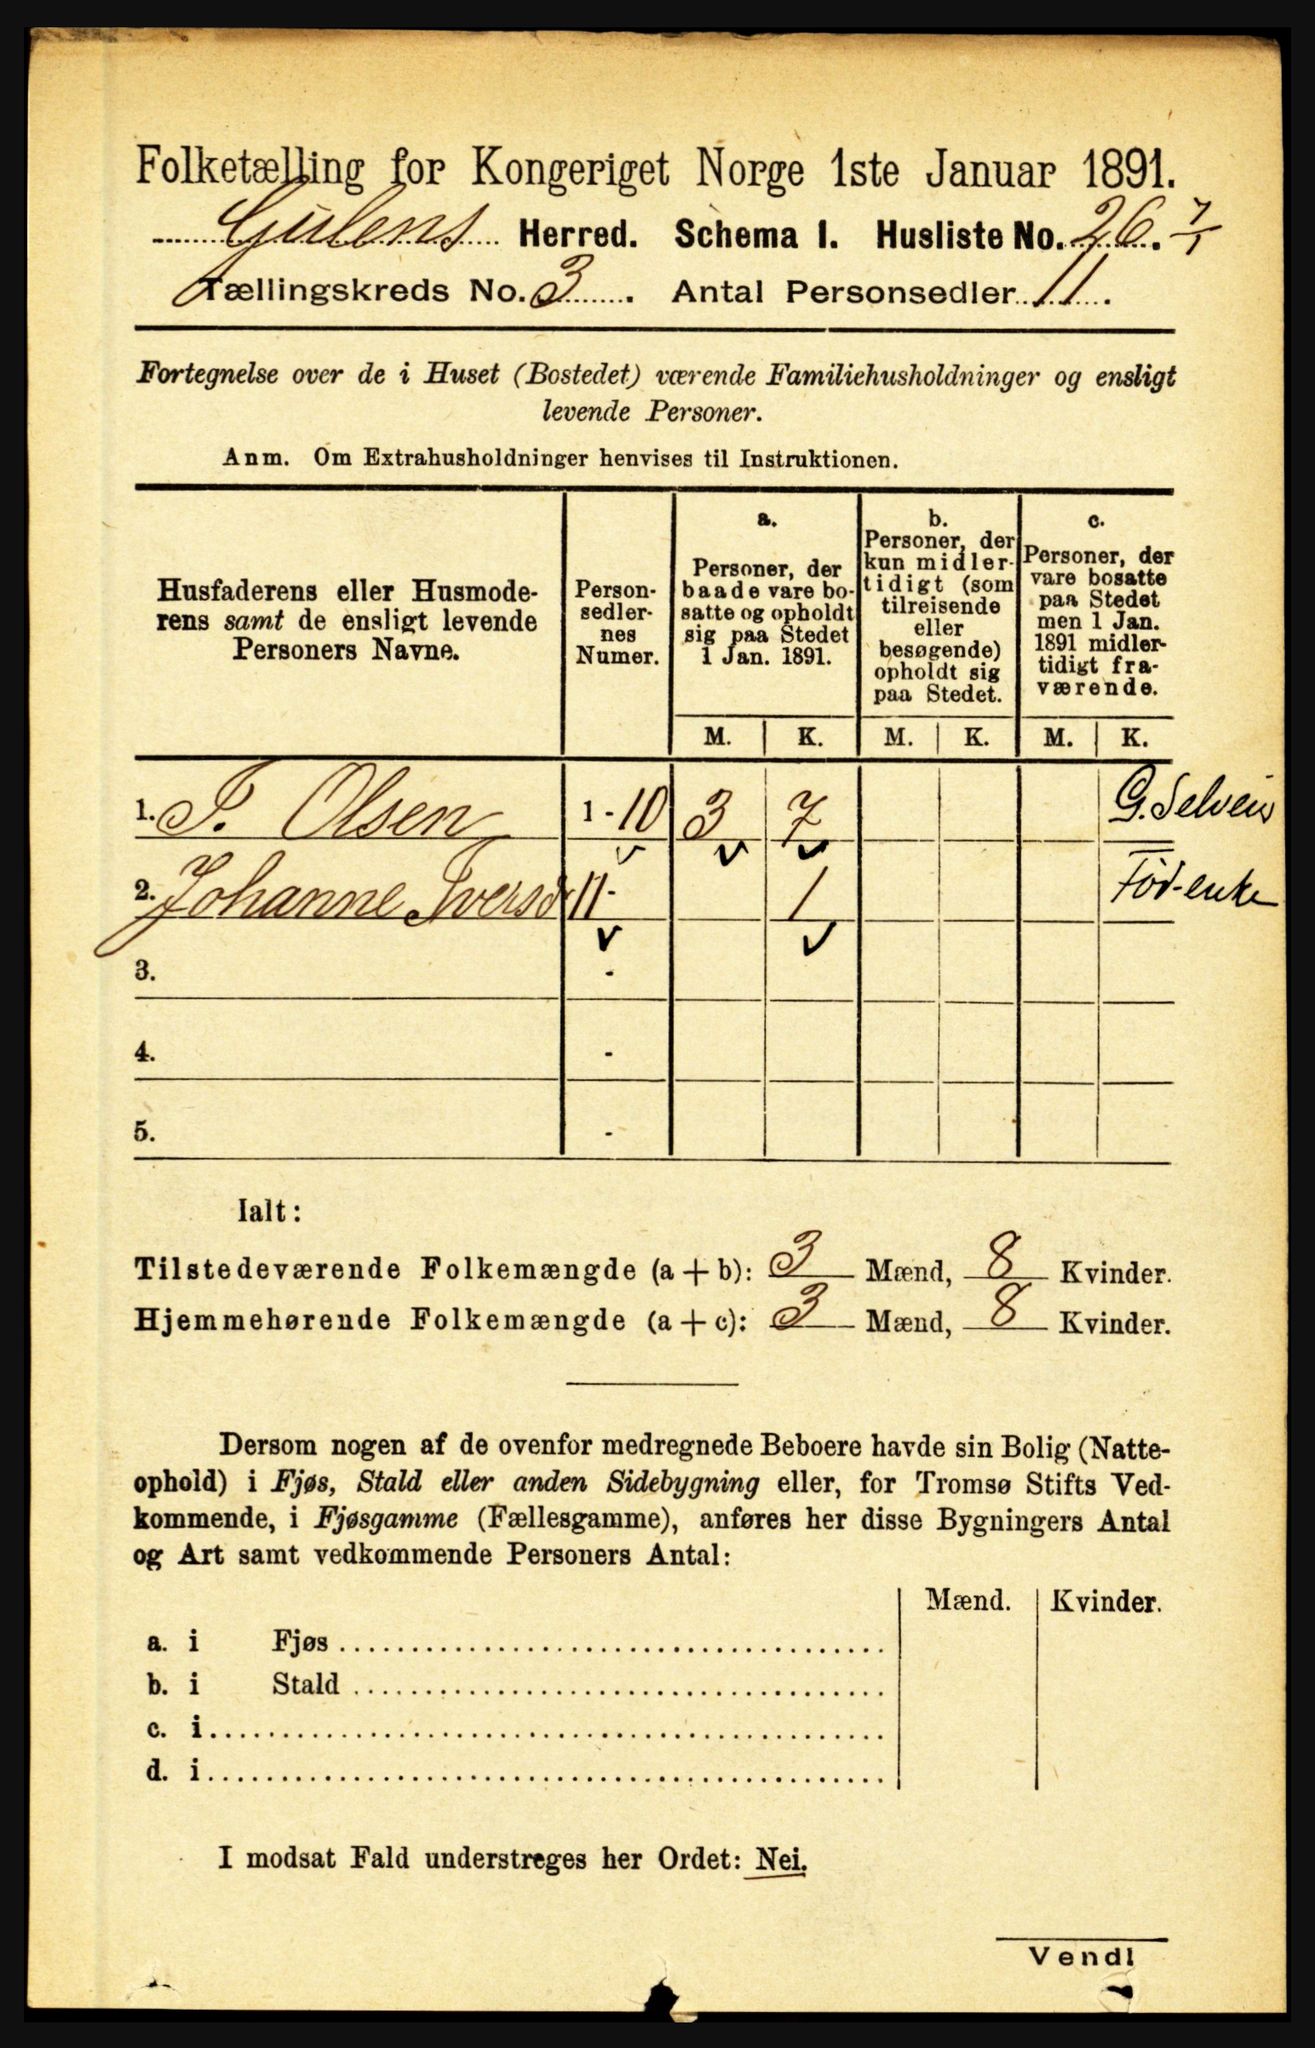 Folketælling for Kongeriget Norge 1ste Januar 1891.
Gulens Herred. Schema I. Husliste No. 26. 7/1
Tællingskreds No. 3. Antal Personsedler 11.
Fortegnelse over de i Huset (Bostedet) værende Familiehusholdninger og ensligt
levende Personer.
Anm. Om Extrahusholdninger henvises til Instruktionen.
Husfaderens eller Husmode-
rens samt de ensligt levende
Personers Navne.
Person-
sedler-
nes
Numer.
a.
Personer, der
baade vare bo-
satte og opholdt
sig paa Stedet
1 Jan. 1891.
b.
Personer, der
kun midler-
tidigt (som
tilreisende
eller
besøgende)
opholdt sig
paa Stedet.
c.
Personer, der
vare bosatte
paa Stedet
men 1 Jan.
1891 midler-
tidigt fra-
værende.
M. K. M. K. M. K.
1. P. Olsen 1 - 10 3 7 G. Selveier
2. Johanne Iversd 11 - 1 Fød-enke
3. -
4. -
5. -
Ialt:
Tilstedeværende Folkemængde (a + b): 3 Mænd, 8 Kvinder.
Hjemmehørende Folkemængde (a + c): 3 Mænd, 8 Kvinder.
Dersom nogen af de ovenfor medregnede Beboere havde sin Bolig (Natte-
ophold) i Fjøs, Stald eller anden Sidebygning eller, for Tromsø Stifts Ved-
kommende, i Fjøsgamme (Fællesgamme), anføres her disse Bygningers Antal
og Art samt vedkommende Personers Antal:
Mænd. Kvinder.
a. i Fjøs
b. i Stald
c. i
d. i
I modsat Fald understreges her Ordet: Nei.
Vend!